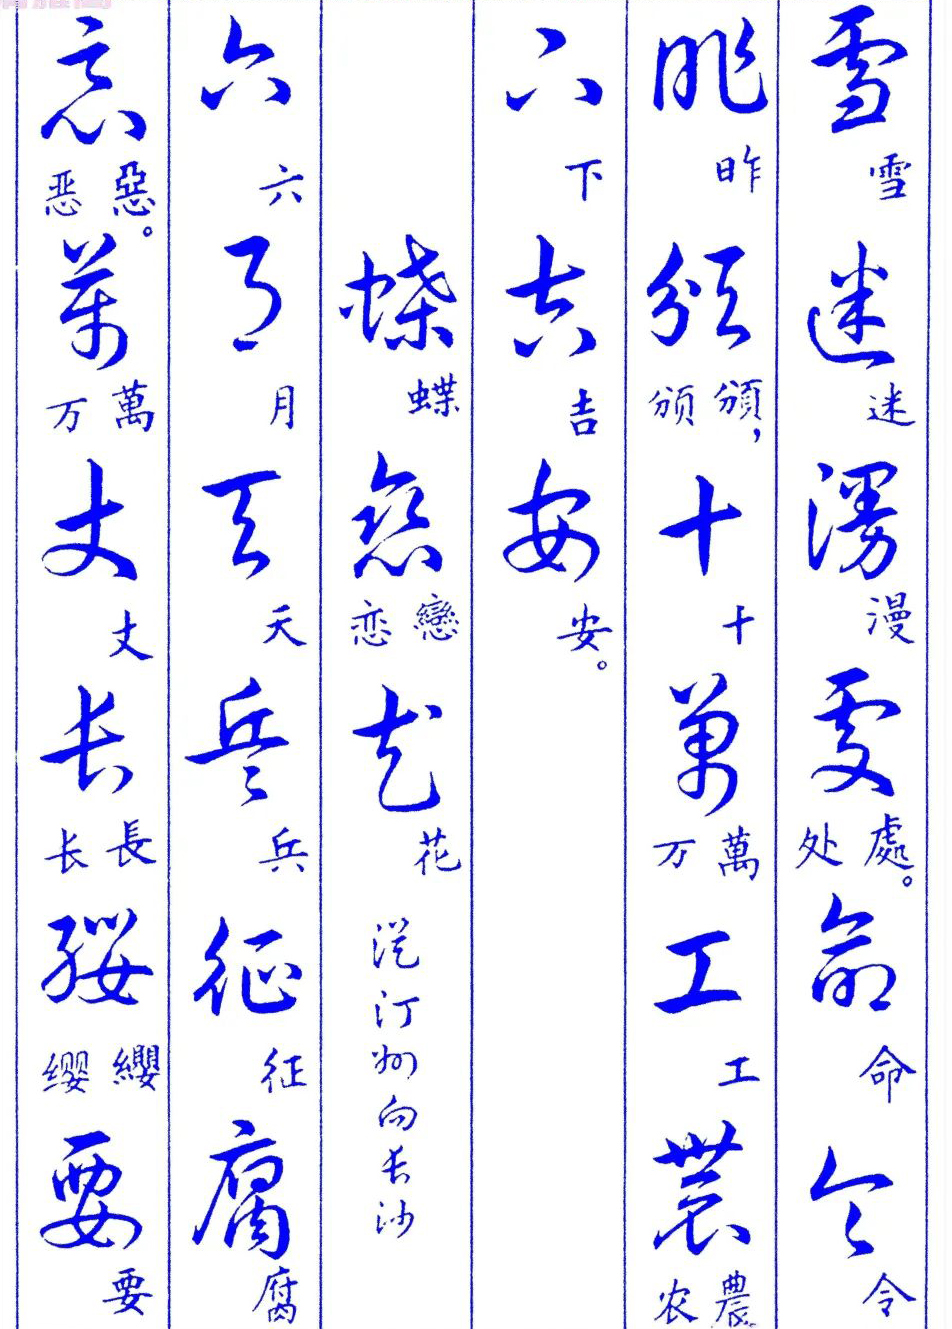 雪雪迷迷漫漫處處。处命命令令
昨昨頒頒,颁十十萬萬万工工農農农
下下吉吉安安。
蝶蝶戀戀恋花花從汀州向长沙
六六月月天天兵兵征征腐腐
惡惡。恶萬萬万丈丈长長长纓纓缨要要